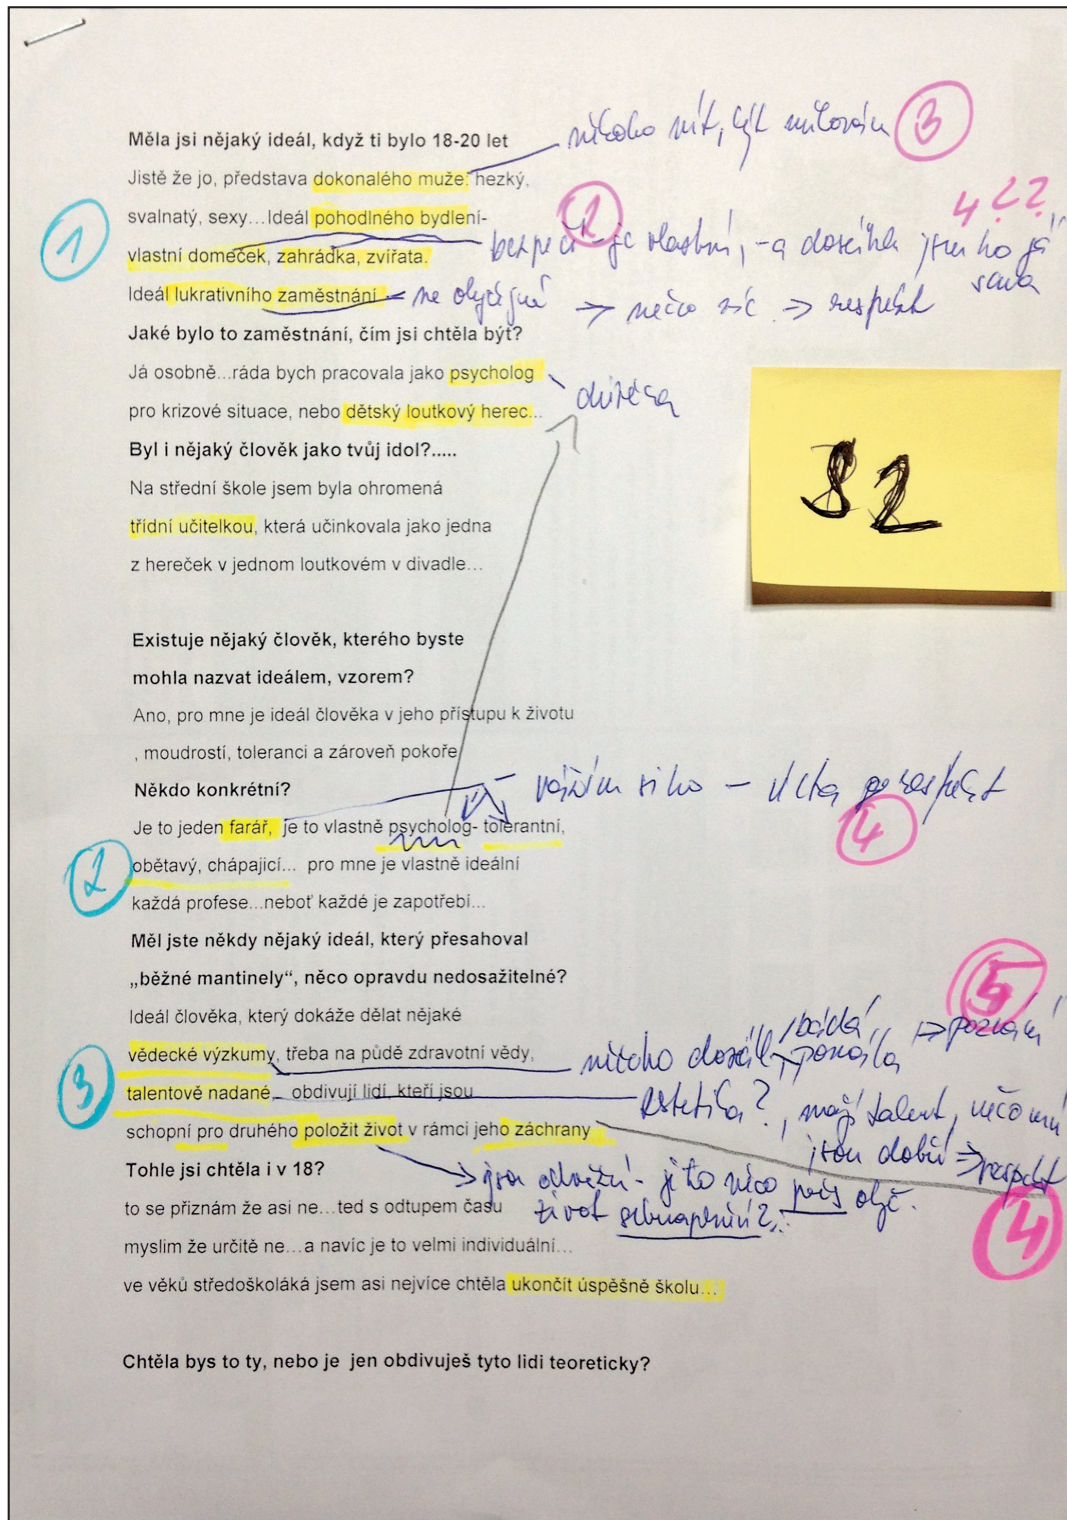 Měla jsi nějaký ideál, když ti bylo 18-20 let
někoho mít, být milován
3
Jistě že jo, představa dokonalého muže: hezký,
svalnatý, sexy...Ideál pohodlného bydlení-
1
2
4 ??
vlastní domeček, zahrádka, zvířata.
bezpečí - je vlastní, - a dosáhla jsem ho já
sama
Ideál lukrativního zaměstnání
ne obyčejné → něco víc → respekt
Jaké bylo to zaměstnání, čím jsi chtěla být?
Já osobně...ráda bych pracovala jako psycholog
důvěra
pro krizové situace, nebo dětský loutkový herec...
Byl i nějaký člověk jako tvůj idol?.....
S2
Na střední škole jsem byla ohromená
třídní učitelkou, která učinkovala jako jedna
z hereček v jednom loutkovém v divadle...
Existuje nějaký člověk, kterého byste
mohla nazvat ideálem, vzorem?
Ano, pro mne je ideál člověka v jeho přístupu k životu
, moudrostí, toleranci a zároveň pokoře
Někdo konkrétní?
vážím si ho - úcta respekt
Je to jeden farář, je to vlastně psycholog- tolerantní,
4
2
obětavý, chápající... pro mne je vlastně ideální
každá profese...neboť každé je zapotřebí...
Měl jste někdy nějaký ideál, který přesahoval
„běžné mantinely“, něco opravdu nedosažitelné?
5
Ideál člověka, který dokáže dělat nějaké
bádá → poznání
vědecké výzkumy, třeba na půdě zdravotní vědy,
3
talentově nadané, obdivují lidí, kteří jsou
estetika?, mají talent, v něčem
schopní pro druhého položit život v rámci jeho záchrany
jsou dobří → respekt
Tohle jsi chtěla i v 18?
→ jsou odvážní - je to něco přes obyč.
4
to se přiznám že asi ne...ted s odtupem času
život sebenaplnění?
myslim že určitě ne...a navíc je to velmi individuální...
ve věků středoškoláká jsem asi nejvíce chtěla ukončít úspěšně školu...
Chtěla bys to ty, nebo je jen obdivuješ tyto lidi teoreticky?